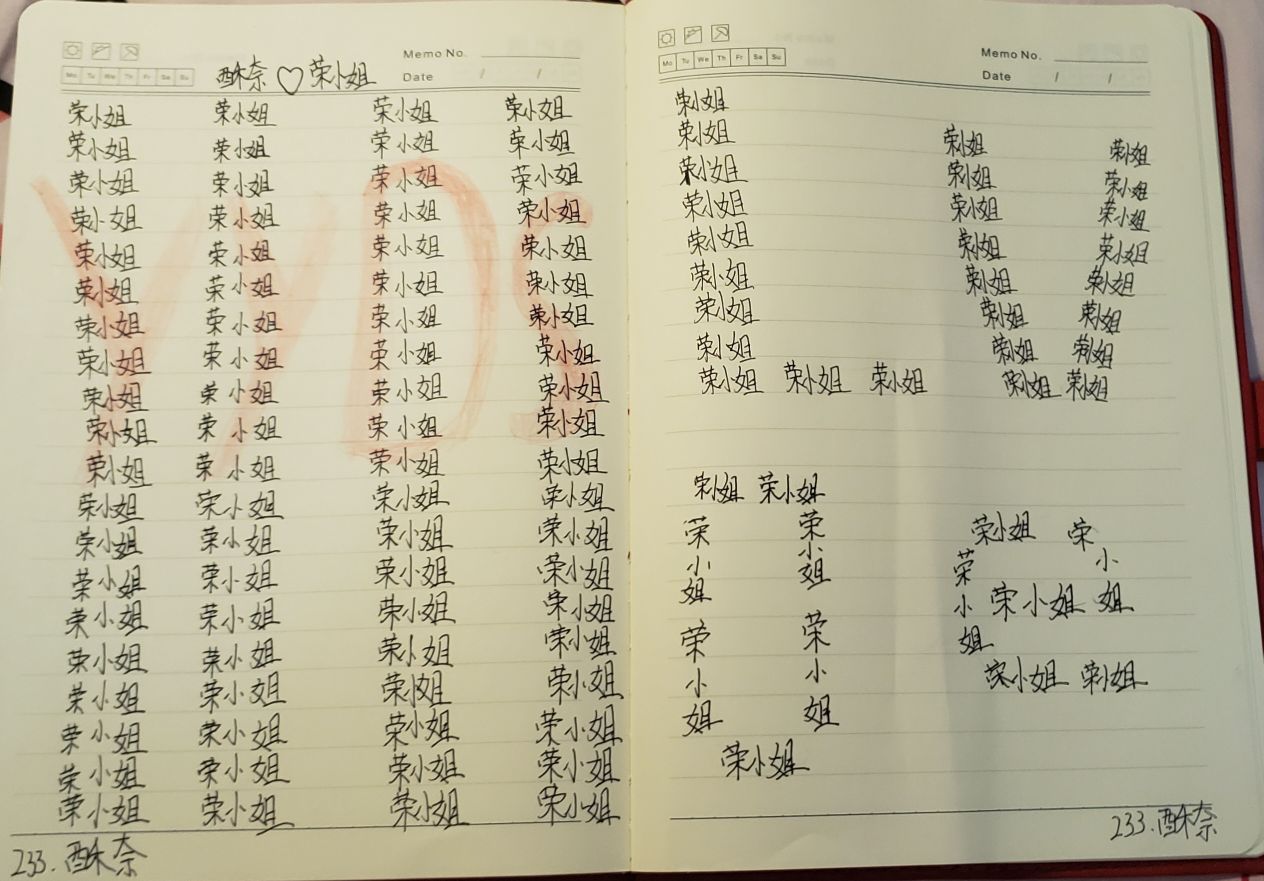 Memo No.
Mo Tu We Th Fr Sa Su
Date / /
酥奈♡荣小姐
荣小姐 荣小姐 荣小姐 荣小姐
荣小姐 荣小姐 荣小姐 荣小姐
荣小姐 荣小姐 荣小姐 荣小姐
荣小姐 荣小姐 荣小姐 荣小姐
荣小姐 荣小姐 荣小姐 荣小姐
荣小姐 荣小姐 荣小姐 荣小姐
荣小姐 荣小姐 荣小姐 荣小姐
荣小姐 荣小姐 荣小姐 荣小姐
荣小姐 荣小姐 荣小姐 荣小姐
荣小姐 荣小姐 荣小姐 荣小姐
荣小姐 荣小姐 荣小姐 荣小姐
荣小姐 荣小姐 荣小姐 荣小姐
荣小姐 荣小姐 荣小姐 荣小姐
荣小姐 荣小姐 荣小姐 荣小姐
荣小姐 荣小姐 荣小姐 荣小姐
荣小姐 荣小姐 荣小姐 荣小姐
荣小姐 荣小姐 荣小姐 荣小姐
荣小姐 荣小姐 荣小姐 荣小姐
荣小姐 荣小姐 荣小姐 荣小姐
荣小姐 荣小姐 荣小姐 荣小姐
YYDS
233.酥奈
Memo No.
Mo Tu We Th Fr Sa Su
Date / /
荣小姐
荣小姐 荣小姐 荣小姐
荣小姐 荣小姐 荣小姐
荣小姐 荣小姐 荣小姐
荣小姐 荣小姐 荣小姐
荣小姐 荣小姐 荣小姐
荣小姐 荣小姐 荣小姐
荣小姐 荣小姐 荣小姐
荣小姐 荣小姐 荣小姐 荣小姐 荣小姐
荣小姐 荣小姐
荣小姐
荣小姐
荣小姐
荣小姐
荣小姐
荣小姐
荣小姐
荣小姐
荣小姐
荣小姐 荣小姐
233.酥奈